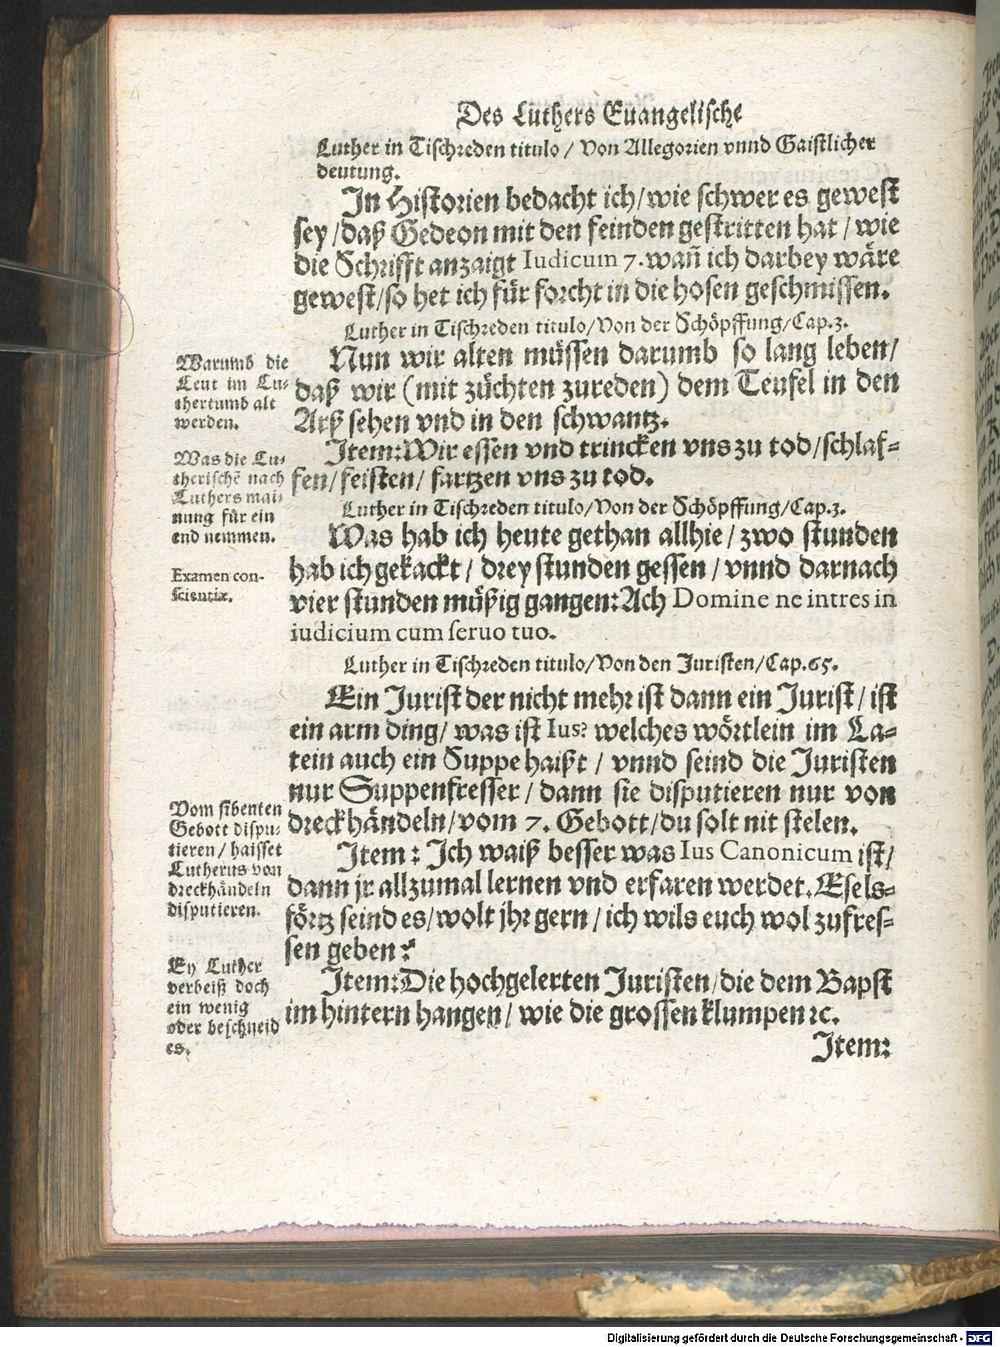 Des Luthers Euangelische
Luther in Tischreden titulo / Von Allegorien vnnd Gaistlicher
deutung.
In Historien bedacht ich/wie schwer es gewest
sey/daß Gedeon mit den feinden gestritten hat / wie
die Schrifft anzaigt Iudicum 7. wañ ich darbey wäre
gewest/so het ich für forcht in die hosen geschmissen.
Luther in Tischreden titulo/Von der Schöpffung/Cap.3.
Warumb die
Leut im Lu-
thertumb alt
werden.
Nun wir alten müssen darumb so lang leben/
daß wir (mit züchten zureden) dem Teufel in den
Arß sehen vnd in den schwantz.
Was die Lu-
therischē nach
Luthers mai-
nung für ein
end nemmen.
Item: Wir essen vnd trincken vns zu tod/schlaf-
fen/feisten/ fartzen vns zu tod.
Luther in Tischreden titulo/Von der Schöpffung/Cap.3.
Examen con-
scientiæ.
Was hab ich heute gethan allhie / zwo stunden
hab ich gekackt / drey stunden gessen / vnnd darnach
vier stunden müßig gangen: Ach Domine ne intres in
iudicium cum seruo tuo.
Luther in Tischreden titulo/Von den Juristen/Cap.65.
Ein Jurist der nicht mehr ist dann ein Jurist / ist
ein arm ding/ was ist Ius? welches wörtlein im La-
tein auch ein Suppe haißt / vnnd seind die Juristen
nur Suppenfresser / dann sie disputieren nur von
dreckhändeln/vom 7. Gebott/du solt nit stelen.
Vom sibenten
Gebott dispu-
tieren / haisset
Lutherus von
dreckhändeln
disputieren.
Item: Ich waiß besser was Ius Canonicum ist/
dann jr allzumal lernen vnd erfaren werdet. Esels-
förtz seind es/wolt jhr gern / ich wils euch wol zufres-
sen geben:
Ey Luther
verbeiß doch
ein wenig
oder beschneid
es.
Item: Die hochgelerten Juristen/die dem Bapst
im hintern hangen/ wie die grossen klumpen ꝛc.
Item:
Digitalisierung gefördert durch die Deutsche Forschungsgemeinschaft - DFG